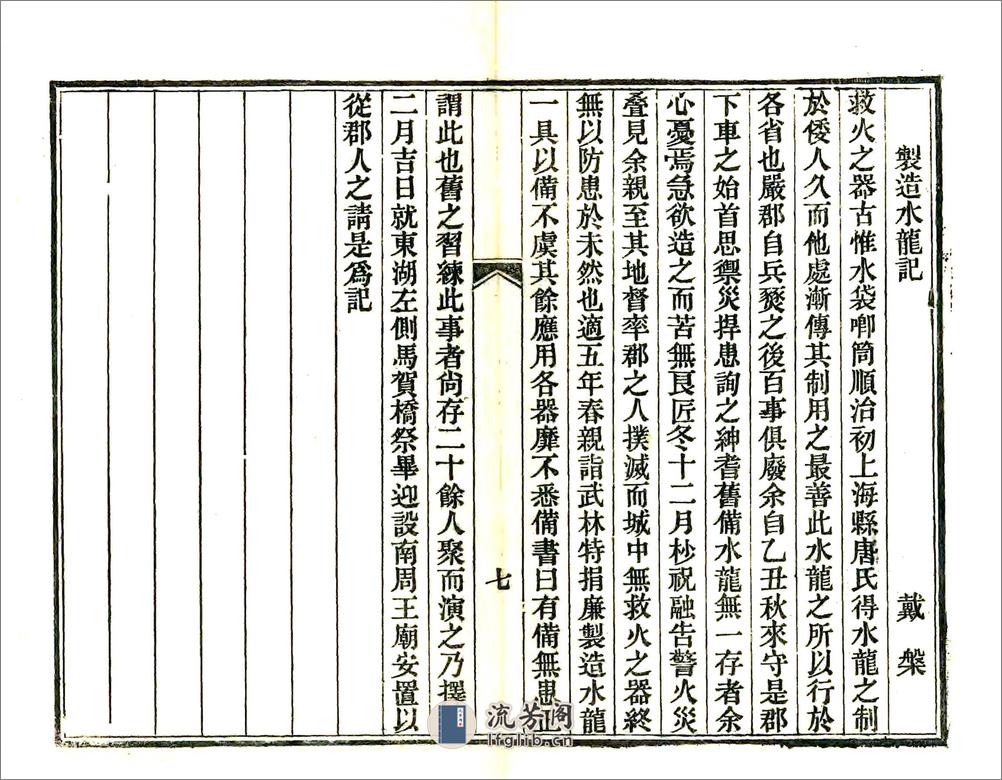 製造水龍記 戴槃
救火之器古惟水袋喞筒順治初上海縣唐氏得水龍之制
於倭人久而他處漸傳其制用之最善此水龍之所以行於
各省也嚴郡自兵燹之後百事俱廢余自乙丑秋來守是郡
下車之始首思禦災捍患詢之紳耆舊備水龍無一存者余
心憂焉急欲造之而苦無良匠冬十二月杪祝融告警火災
叠見余親至其地督率郡之人撲滅而城中無救火之器終
無以防患於未然也適五年春親詣武林特捐廉製造水龍
一具以備不虞其餘應用各器靡不悉備書曰有備無患
七
謂此也舊之習練此事者尚存二十餘人聚而演之乃擇
二月吉日就東湖左側馬賀橋祭畢迎設南周王廟安置以
從郡人之請是爲記
流芳阁
lfglib.cn